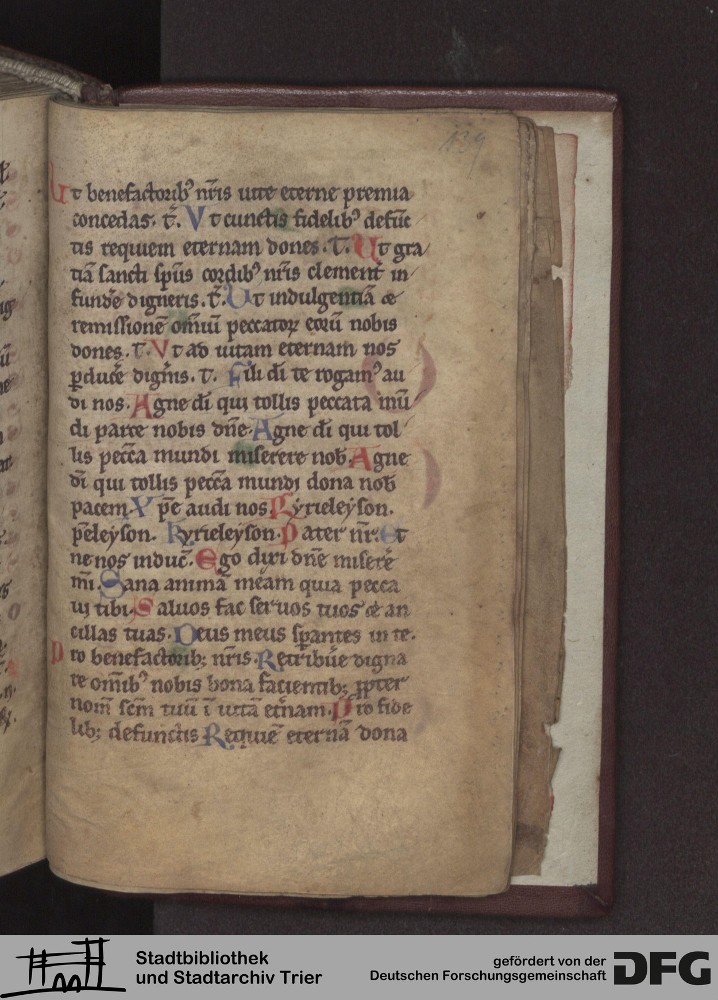 139
Ut benefactorib⁹ nr̄is uite eterne premia
concedas. t̄. Vt cunctis fidelib⁹ defūc
tis requiem eternam dones. T. Ut gra
tiā sancti sp̄us cordib⁹ nr̄is clement in
funde digneris. t̄. Ut indulgentiā &
remissionē om̄iū peccatoꝝ eorū nobis
dones. T. Vt ad uitam eternam nos
ꝑducē dign̄is. T. Fili di te rogam⁹ au
di nos. Agne dī qui tollis peccata mū
di parce nobis dn̄e. Agne dī qui tol
lis pecc̄a mundi miserere nob̄. Agne
dī qui tollis pecc̄a mundi dona nob̄
pacem. Xp̄e audi nos. Kyrieleyson.
p̄eleyson. Kyrieleyson. Pater nr̄. Et
ne nos induc̄. Ego dixi dn̄e miserē
m̄i. Sana animā meam quia pecca
ui tibi. Saluos fac seruos tuos & an
cillas tuas. Deus meus sꝑantes in te.
Pro benefactorib; nr̄is. Retribūe digna
re om̄ib⁹ nobis bona facientib; ꝓpter
nom̄ sc̄m tuū ī uitā et̄nam. Pro fide
lib; defunctis Requiē eternā dona
Stadtbibliothek
und Stadtarchiv Trier
gefördert von der
Deutschen Forschungsgemeinschaft
DFG